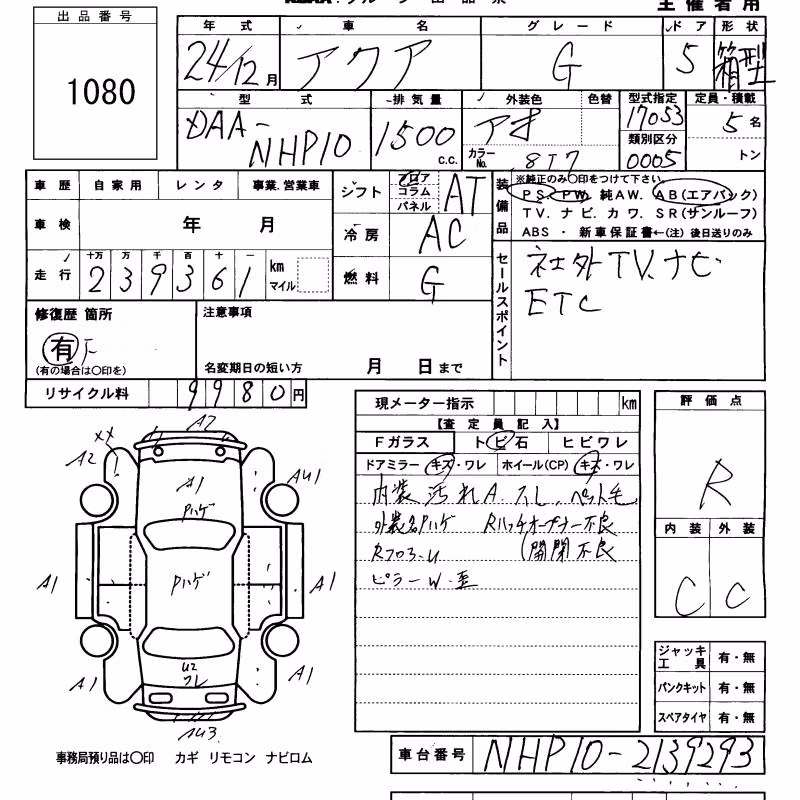 主催者用
出品番号
1080
年式 車名 グレード ドア 形状
24/12月 アクア G 5 箱型
型式 排気量 外装色 色替 型式指定 定員・積載
DAA-NHP10 1500c.c. アオ 17053 5名
カラーNo. 8T7 類別区分 0005 トン
車歴 自家用 レンタ 事業.営業車
シフト フロア コラム パネル AT
車検 年 月
冷房 AC
走行 十万 万 千 百 十 一
239361 km マイル
燃料 G
装備品
※純正のみ○印をつけて下さい。
PS. PW. 純AW. AB(エアバック)
TV. ナビ. カワ. SR(サンルーフ)
ABS ・ 新車保証書←(注) 後日送りのみ
セールスポイント
社外TV.ナビ
ETC
修復歴 箇所
有
(有の場合は○印を)
注意事項
名変期日の短い方 月 日まで
リサイクル料 9980円
現メーター指示 km
【査定員記入】
Fガラス トビ石 ヒビワレ
ドアミラー キズ・ワレ ホイール(CP) キズ・ワレ
内装汚れA.スレ.ペット毛
外装名Pハゲ Rハッチオープナー不良
(開閉不良
ピラーW.歪
評価点
R
内装 外装
C C
ジャッキ工具 有・無
パンクキット 有・無
スペアタイヤ 有・無
A2
XX
A2
A1
Pハゲ
AU1
A1
Pハゲ
A1
U2
フレ
A1
A1
AU3
事務局預り品は○印 カギ リモコン ナビロム
車台番号 NHP10-2139293